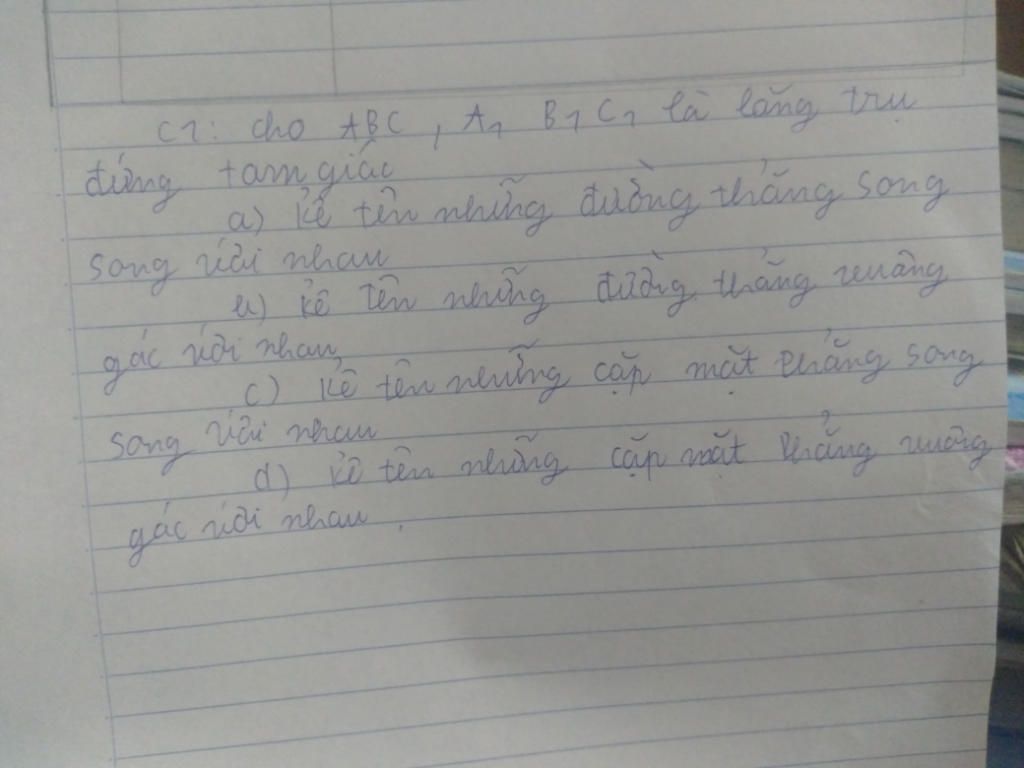 C1: cho ABC, A₁ B₁ C₁ là lăng trụ
đứng tam giác
a) kể tên những đường thẳng song
song với nhau
b) kể tên những đường thẳng vuông
góc với nhau
c) kể tên những cặp mặt phẳng song
song với nhau
d) kể tên những cặp mặt phẳng vuông
góc với nhau.